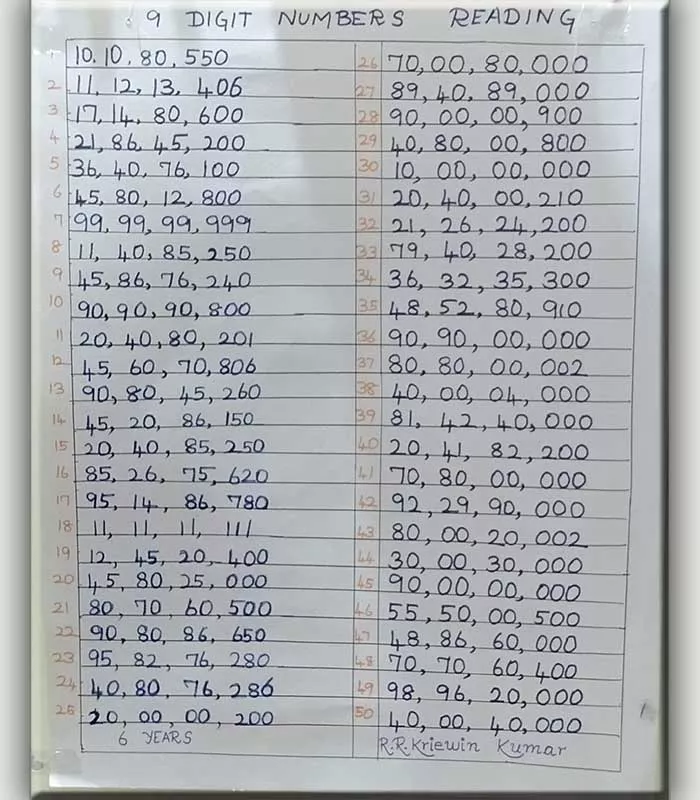 9 DIGIT NUMBERS READING
1 10.10, 80, 550
2 11, 12, 13, 406
3 17, 14, 80, 600
4 21, 86, 45, 200
5 36, 40, 76, 100
6 45, 80, 12, 800
7 99, 99, 99, 999
8 11, 40, 85, 250
9 45, 86, 76, 240
10 90, 90, 90, 800
11 20, 40, 80, 201
12 45, 60, 70, 806
13 90, 80, 45, 260
14 45, 20, 86, 150
15 20, 40, 85, 250
16 85, 26, 75, 620
17 95, 14, 86, 780
18 11, 11, 11, 111
19 12, 45, 20, 400
20 45, 80, 25, 000
21 80, 70, 60, 500
22 90, 80, 86, 650
23 95, 82, 76, 280
24 40, 80, 76, 286
25 20, 00, 00, 200
6 YEARS
26 70, 00, 80, 000
27 89, 40, 89, 000
28 90, 00, 00, 900
29 40, 80, 00, 800
30 10, 00, 00, 000
31 20, 40, 00, 210
32 21, 26, 24, 200
33 79, 40, 28, 200
34 36, 32, 35, 300
35 48, 52, 80, 910
36 90, 90, 00, 000
37 80, 80, 00, 002
38 40, 00, 04, 000
39 81, 42, 40, 000
40 20, 41, 82, 200
41 70, 80, 00, 000
42 92, 29, 90, 000
43 80, 00, 20, 002
44 30, 00, 30, 000
45 90, 00, 00, 000
46 55, 50, 00, 500
47 48, 86, 60, 000
48 70, 70, 60, 400
49 98, 96, 20, 000
50 40, 00, 40, 000
R.R.Kriewin Kumar